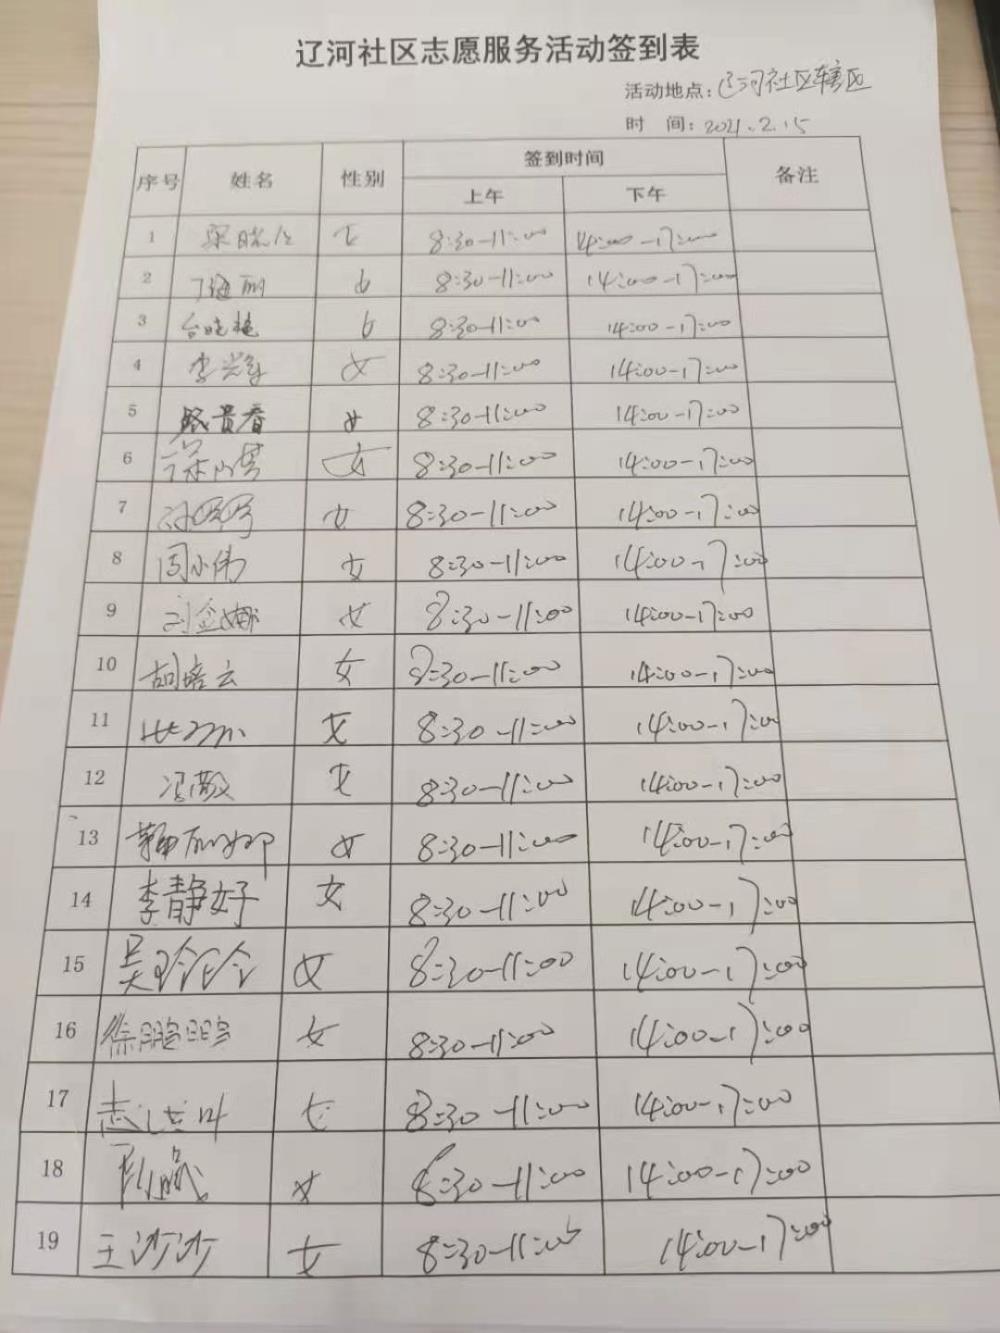 辽河社区志愿服务活动签到表
活动地点:辽河社区辖区
时 间:2021.2.15
序号 姓名 性别 签到时间 备注
上午 下午
1 女 8:30-11:00 14:00-17:00
2 女 8:30-11:00 14:00-17:00
3 女 8:30-11:00 14:00-17:00
4 女 8:30-11:00 14:00-17:00
5 女 8:30-11:00 14:00-17:00
6 女 8:30-11:00 14:00-17:00
7 女 8:30-11:00 14:00-17:00
8 周小伟 女 8:30-11:00 14:00-17:00
9 女 8:30-11:00 14:00-17:00
10 胡培云 女 8:30-11:00 14:00-17:00
11 女 8:30-11:00 14:00-17:00
12 冯敏 女 8:30-11:00 14:00-17:00
13 女 8:30-11:00 14:00-17:00
14 李静好 女 8:30-11:00 14:00-17:00
15 吴玲玲 女 8:30-11:00 14:00-17:00
16 徐鹏鹏 女 8:30-11:00 14:00-17:00
17 女 8:30-11:00 14:00-17:00
18 女 8:30-11:00 14:00-17:00
19 王沙沙 女 8:30-11:00 14:00-17:00